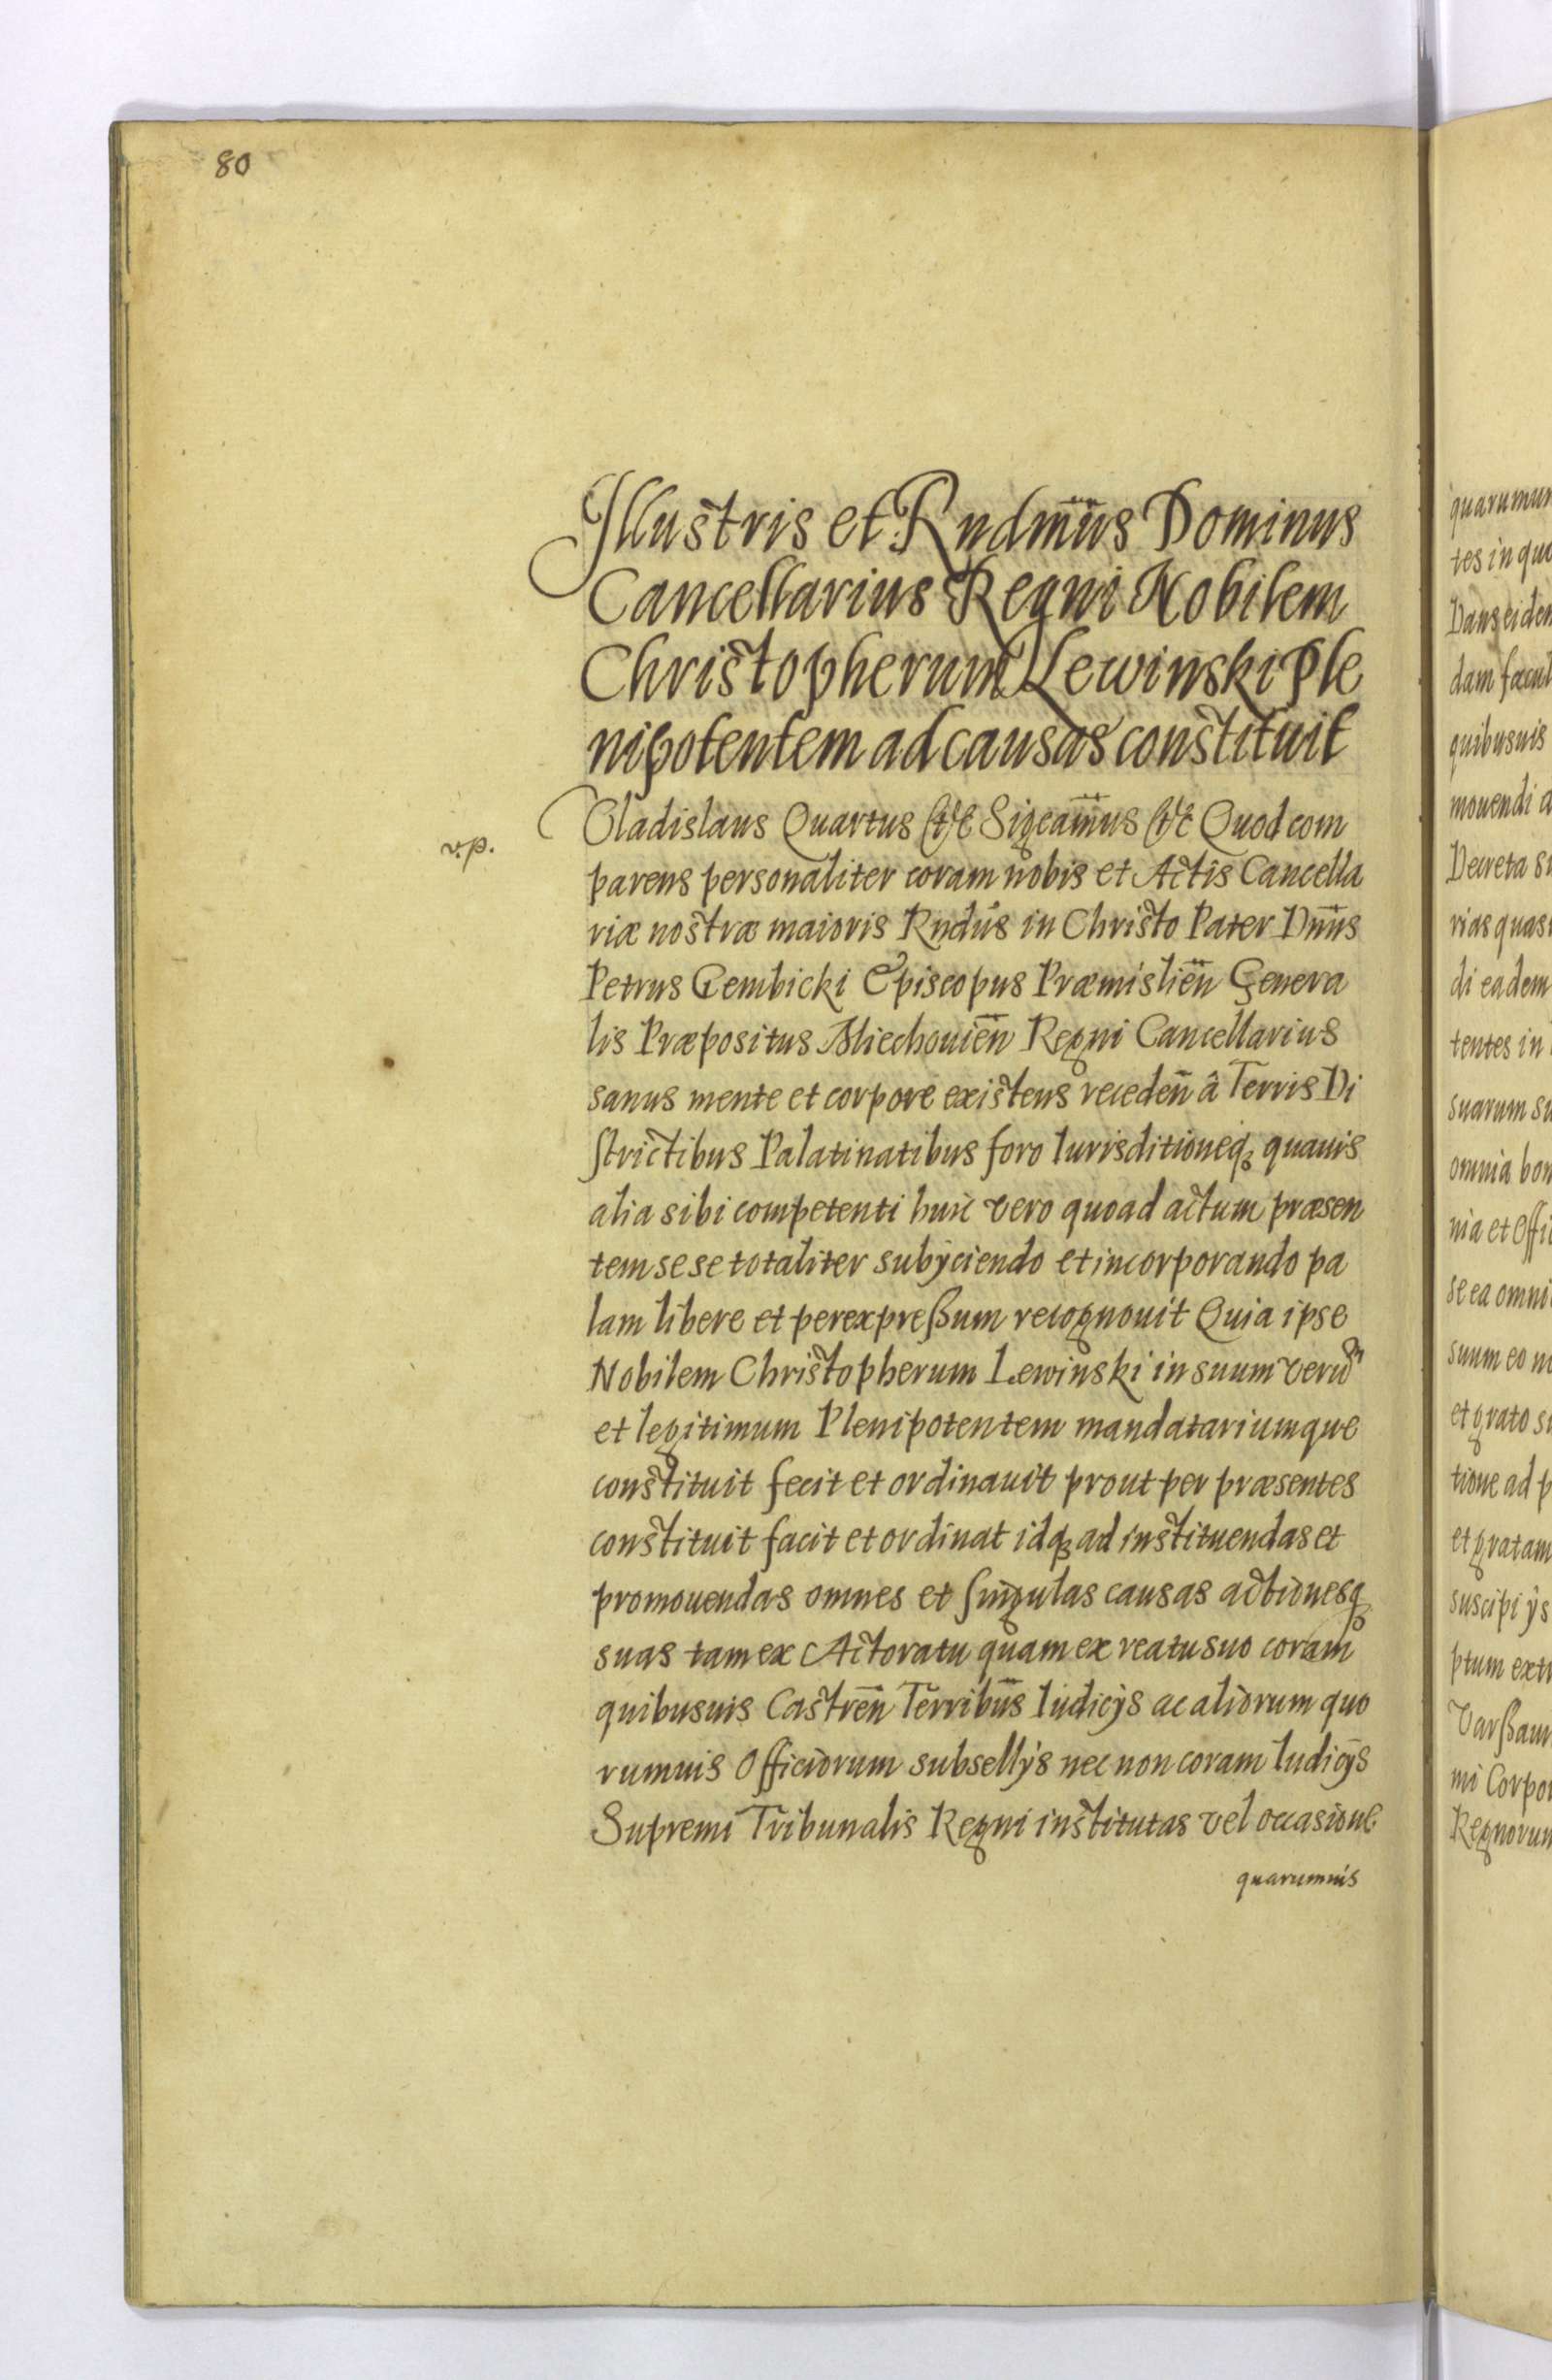 80
Illustris et Rndm̃us Dominus
Cancellarius Regni Nobilem
Christopherum Lewinski Ple
nipotentem ad causas constituit
Vladislaus Quartus &c Sigcam̃us &c Quod com
parens personaliter coram nobis et Actis Cancella
riæ nostræ maioris Rndus in Christo Pater Dnus
Petrus Gembicki Episcopus Præmislien̄ Genera
lis Præpositus Miechouien̄ Regni Cancellarius
sanus mente et corpore existens receden̄ â Terris Di
strictibus Palatinatibus foro Iurisditioneq quauis
alia sibi competenti huic vero quoad actum præsen
tem sese totaliter subÿciendo et incorporando pa
lam libere et per expreßum recognouit Quia ipse
Nobilem Christopherum Lewinski in suum verum
et legitimum Plenipotentem mandatariumque
constituit fecit et ordinauit prout per præsentes
constituit facit et ordinat idq ad instituendas et
promouendas omnes et singulas causas actionesq
suas tam ex Actoratu quam ex reatu suo coram
quibusuis Castren̄ Terribus̄ Iudicÿs ac aliorum quo
rumuis Officiorum subsellÿs nec non coram Iudicÿs
Supremi Tribunalis Regni institutas vel occasione
quarumuis
quarumuir
tes in quo
Dans eiden
dam facul
quibusuis
mouendi a
Decreta su
rias quas
di eadem
tentes in
suarum su
omnia bon
nia et Offi
se ea omni
suum eo m
et grato su
tione ad p
et gratam
suscipi ÿs
ptum extr
Varßau
mi Corpor
Regnorum